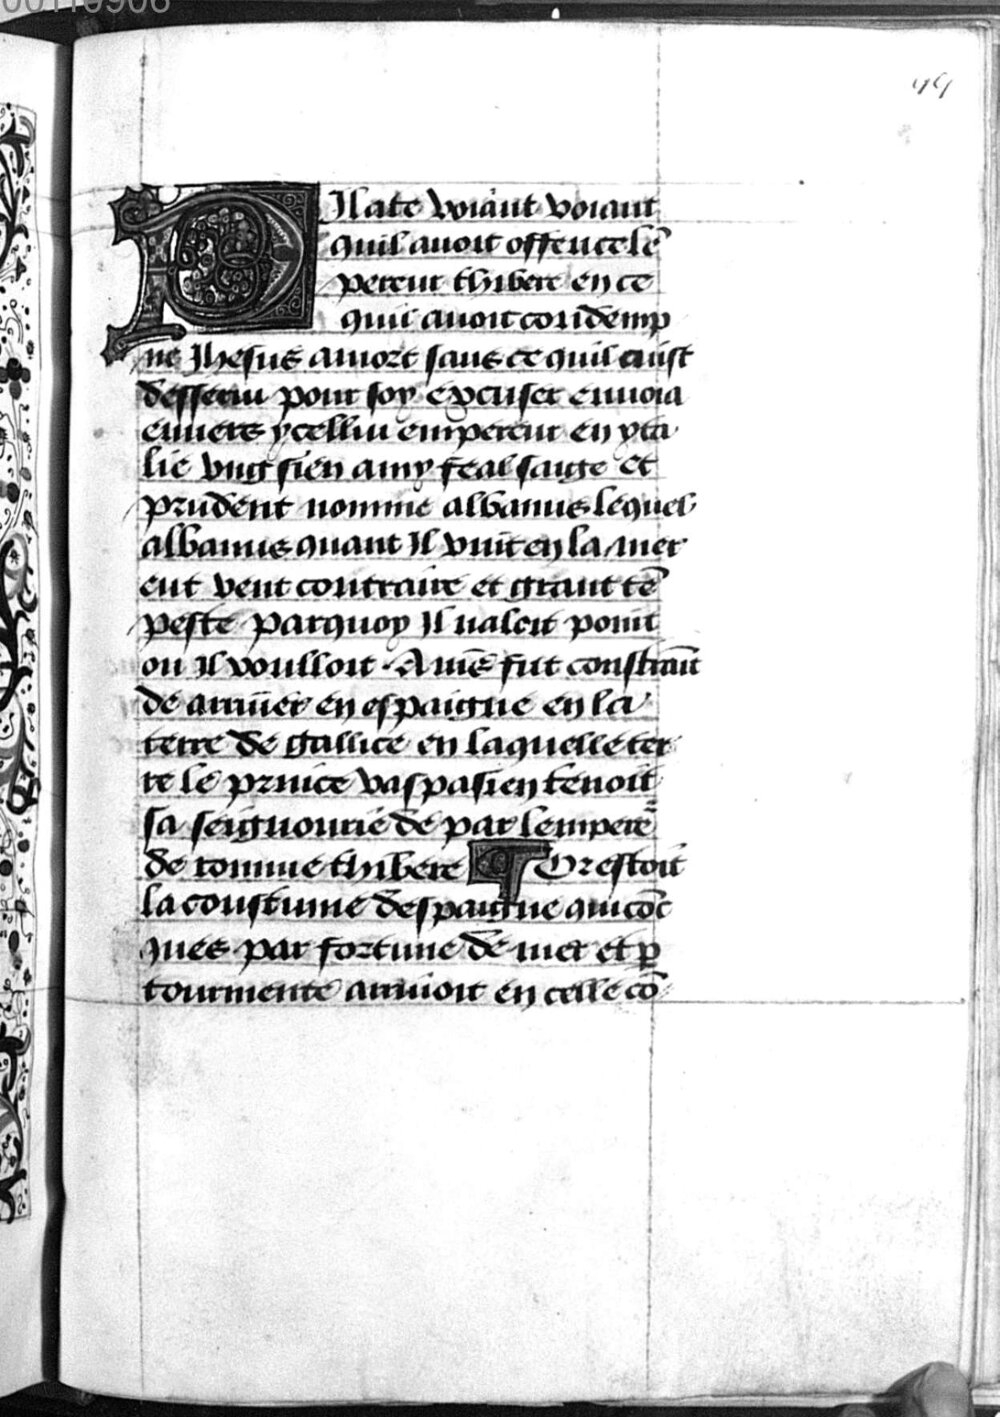 PIlate voiant voiant
quil auoit offence lē
pereur thibere en ce
quil auoit condemp
ne Jhesus a mort sans ce quil euist
desserui pour soy excuser enuoia
enuers ycellui empereur en yta
lie vng sien amy feal saige et
prudent nomme albanus lequel
albanus quant Il vint en la mer
eut vent contraire et grant tē
peste parquoy Il naloit point
ou Il voulloit . Ains fut constraīt
de arriuer en espaigne en la
terre de gallice en laquelle ter
re le prince vaspasien tenoit
sa seignourie de par lempere
de romme thibere ¶ Or estoit
la coustume despaigne qui cōc
ques par fortune de mer et p
tourmente arriuoit en celle cō